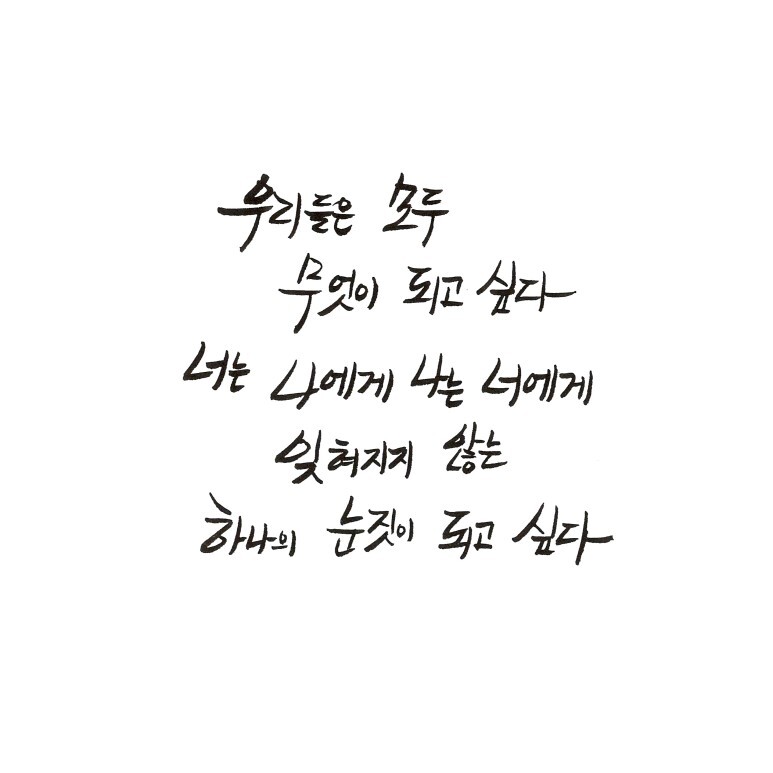 우리들은 모두
무엇이 되고 싶다
너는 나에게 나는 너에게
잊혀지지 않는
하나의 눈짓이 되고 싶다